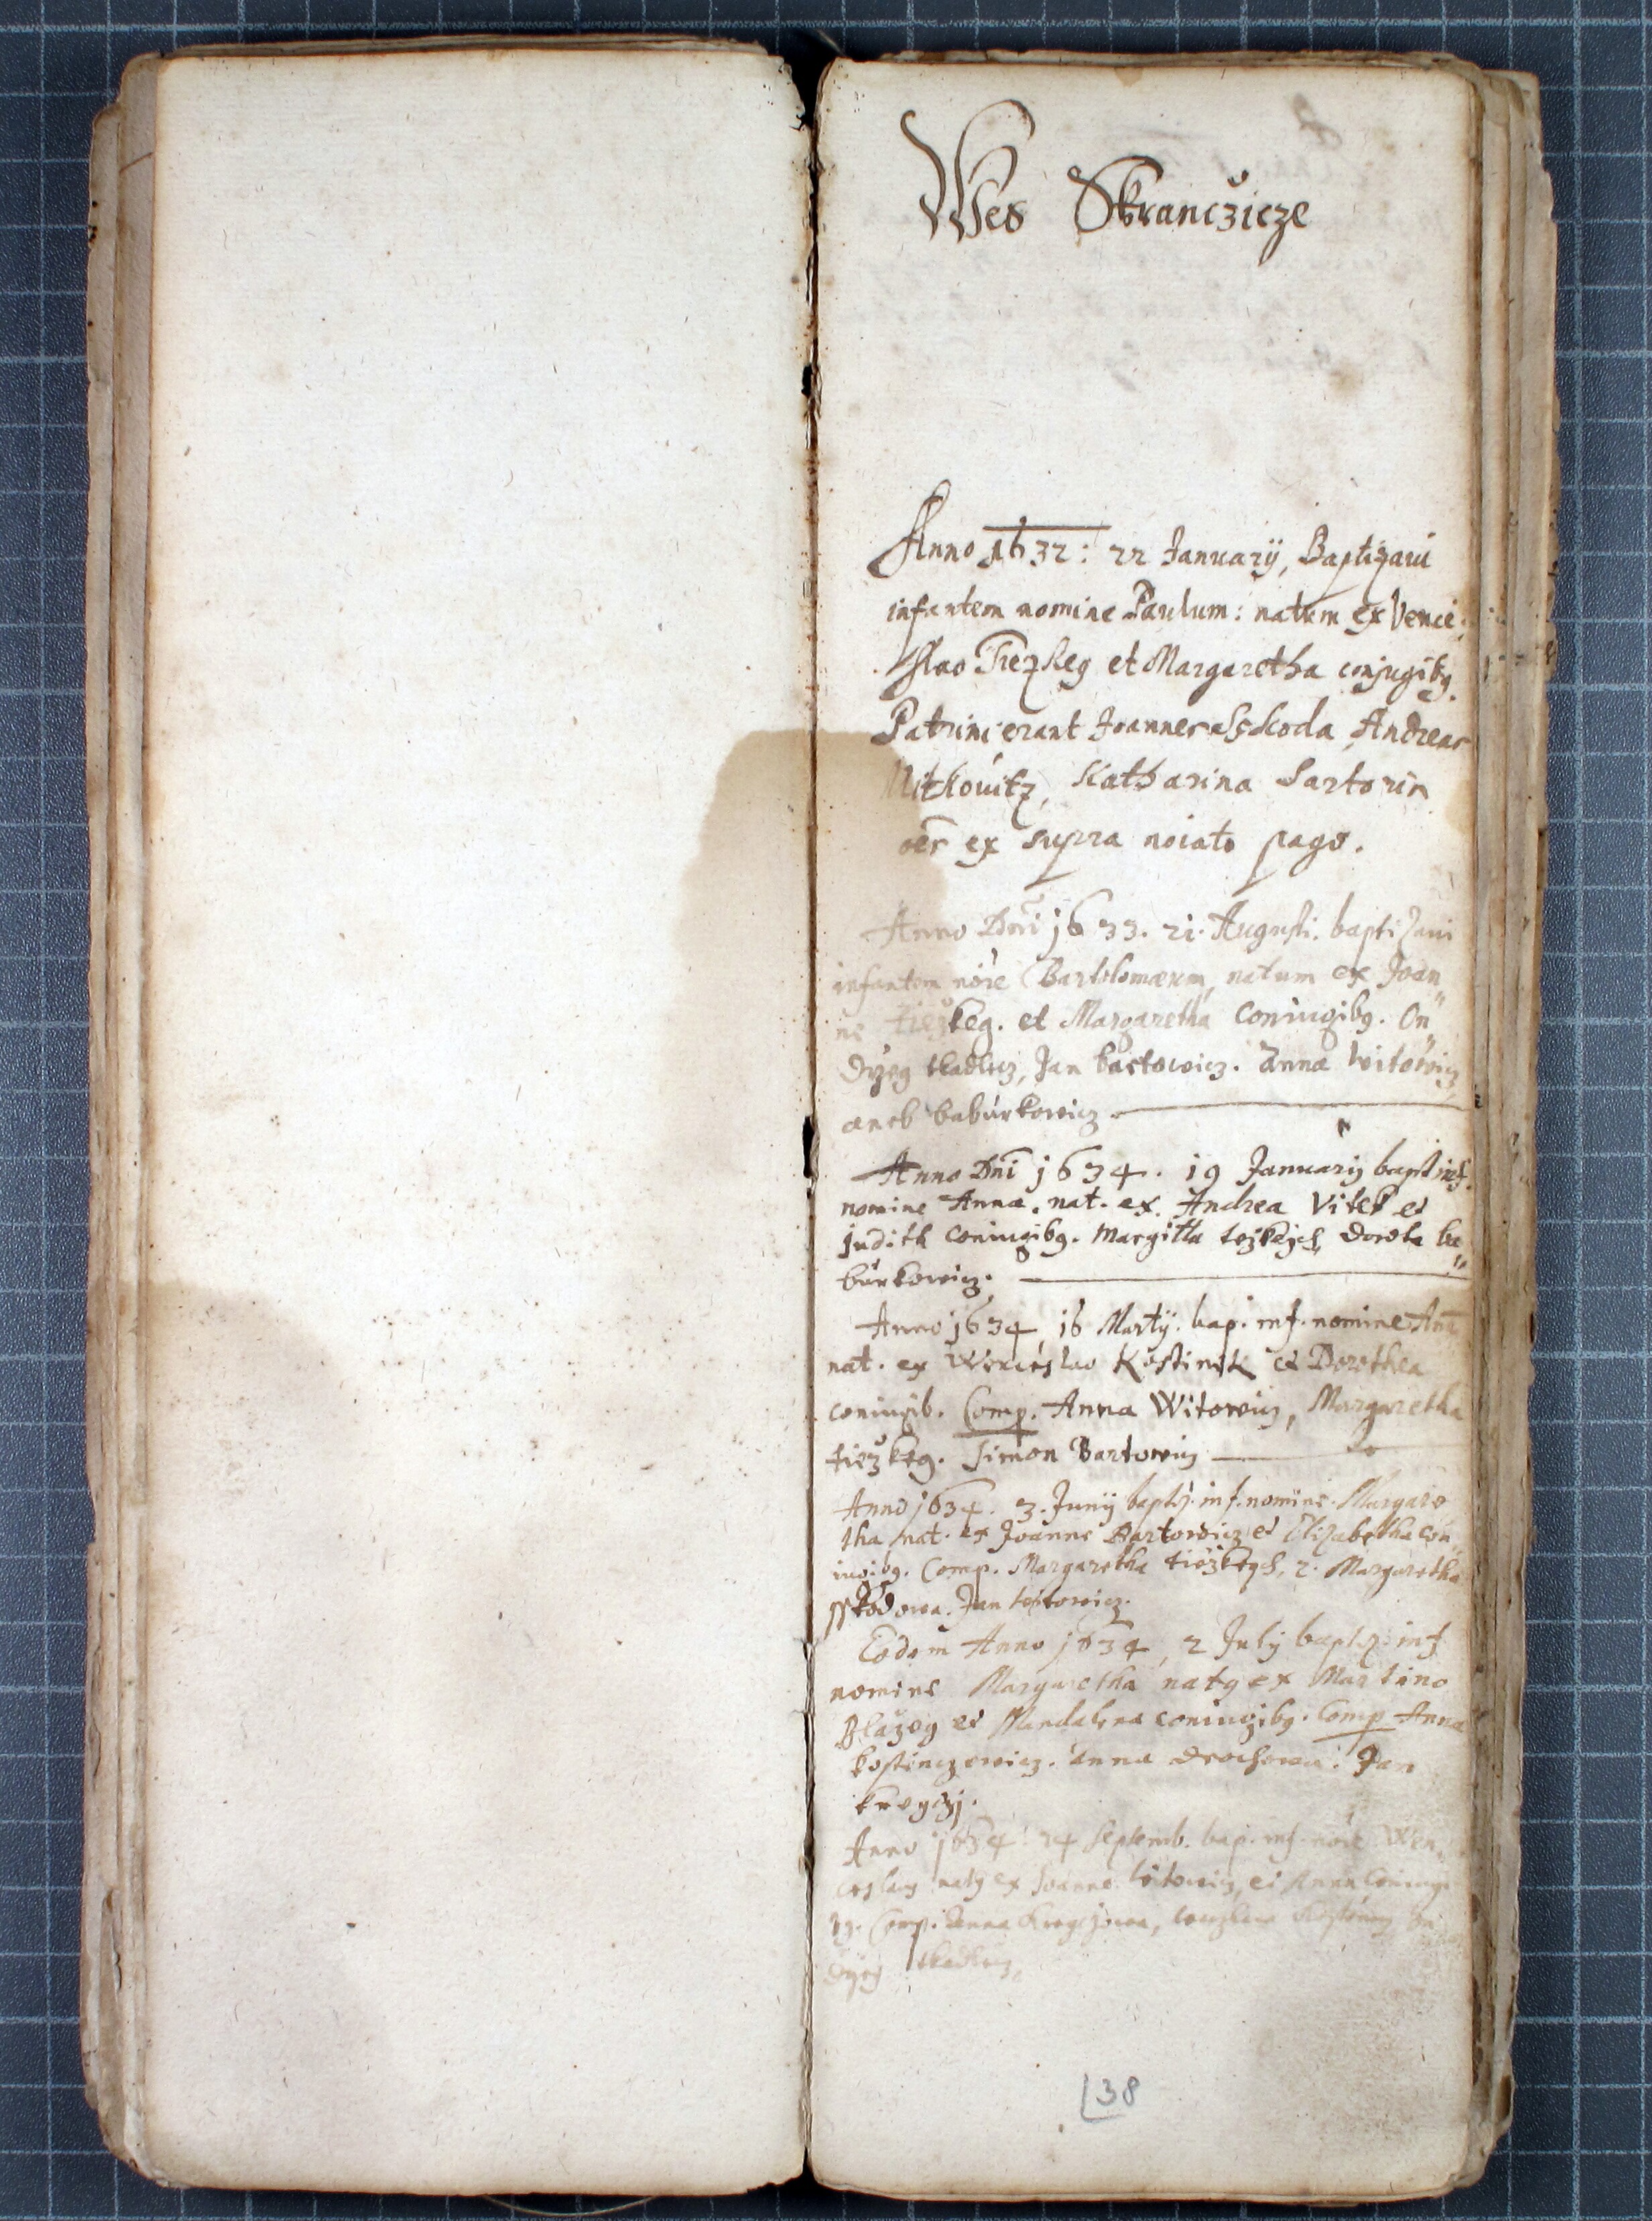 Wes Skrancžicze
Anno 1632: 22 Januarij, Baptizavi
infantem nomine Paulum: natum ex Vence
slao Tiezkeg et Margaretha conjugibg.
Patrini erant Joannes Sskoda, Andreas
Mitkovitz, Katharina Sartorin
oēs ex supra noiato pago.
Anno Dni 1633. 21. Augusti. baptizavi
infantem nōie Bartolomæum, natum ex Joan„
ne tiežkeg. et Margaretha Coniugibg. On„
držeg tkadlecz, Jan bartowicz. Anna witowicz
aneb baburkowicz.
Anno Dni 1634. 19 Januarij bapt inf.
nomine Anna. nat. ex. Andrea Vitek et
Judith coniugibg. Margitta težkých, Dorota ba„
burkowicz.
Anno 1634, 16 Martij. bap. inf. nomine Anā
nat. ex Wenceslao Kostinek et Dorothea
coniugib. Comp. Anna Witowicz, Margaretha
tiežkeg. Simon Bartowicz
Anno 1634. 3. Junij baptiz. inf. nomine. Margare
tha, nat. ex Joanne Bartowicz et Elizabetha con„
iugibg. Comp. Margaretha tiežkegch, 2. Margaretha
sskodowa. Jan witowicz.
Eodem Anno 1634, 2 July baptiz. inf
nomine Margaretha natg ex Martino
Blažeg et Mandalena coniugibg. Comp Anna
kostinczowicz. Anna Jan
kregčzj.
Anno 1634. 24 Septemb. bap. inf. nōie Wen„
ceslaus natg ex Joanne witowicz, et Anna Coniugi
bg. Comp. Anna kregčjowa, On
držeg tkadlecz,
38